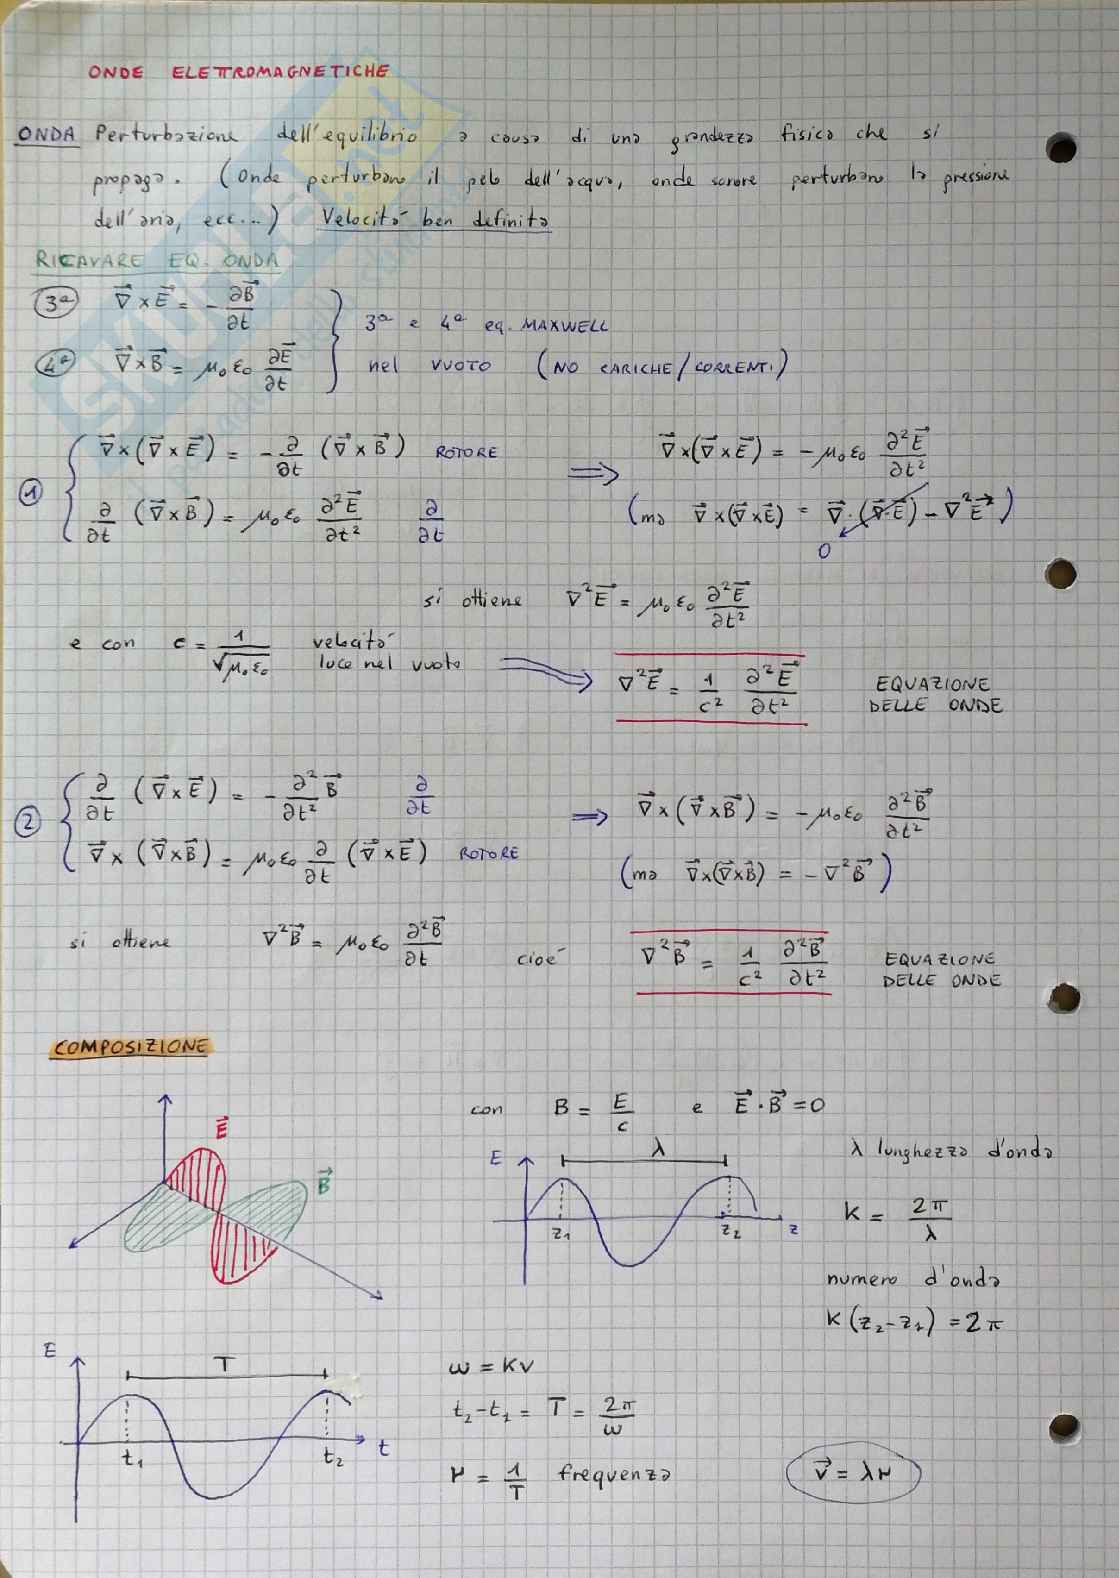 ONDE ELETTROMAGNETICHE
ONDA Perturbazione dell'equilibrio a causa di una grandezza fisica che si
propaga. (Onde perturbano il pelo dell'acqua, onde sonore perturbano la pressione
dell'aria, ecc...) Velocità ben definita
RICAVARE EQ. ONDA
3ª ∇⃗ × E⃗ = - ∂B⃗/∂t
3ª e 4ª eq. MAXWELL
4ª ∇⃗ × B⃗ = μ₀ε₀ ∂E⃗/∂t
nel VUOTO (NO CARICHE/CORRENTI)
1 ∇⃗ × (∇⃗ × E⃗) = - ∂/∂t (∇⃗ × B⃗) ROTORE ⟹ ∇⃗ × (∇⃗ × E⃗) = - μ₀ε₀ ∂²E⃗/∂t²
∂/∂t (∇⃗ × B⃗) = μ₀ε₀ ∂²E⃗/∂t² ∂/∂t (ma ∇⃗ × (∇⃗ × E⃗) = ∇⃗ · (∇⃗ · E⃗) - ∇²E⃗)
0
si ottiene ∇²E⃗ = μ₀ε₀ ∂²E⃗/∂t²
e con c = 1/√μ₀ε₀ velocità
luce nel vuoto
∇²E⃗ = 1/c² ∂²E⃗/∂t² EQUAZIONE
DELLE ONDE
2 ∂/∂t (∇⃗ × E⃗) = - ∂²/∂t² B⃗ ∂/∂t ⟹ ∇⃗ × (∇⃗ × B⃗) = - μ₀ε₀ ∂²B⃗/∂t²
∇⃗ × (∇⃗ × B⃗) = μ₀ε₀ ∂/∂t (∇⃗ × E⃗) ROTORE (ma ∇⃗ × (∇⃗ × B⃗) = - ∇²B⃗)
si ottiene ∇²B⃗ = μ₀ε₀ ∂²B⃗/∂t cioè ∇²B⃗ = 1/c² ∂²B⃗/∂t² EQUAZIONE
DELLE ONDE
COMPOSIZIONE
E⃗
B⃗
con B = E/c e E⃗ · B⃗ = 0
E λ
z₁ z₂ z
λ lunghezza d'onda
K = 2π/λ
numero d'onda
K(z₂-z₁) = 2π
E T
t₁ t₂ t
ω = Kv
t₂-t₁ = T = 2π/ω
ν = 1/T frequenza
v⃗ = λν
SKUOLA.net